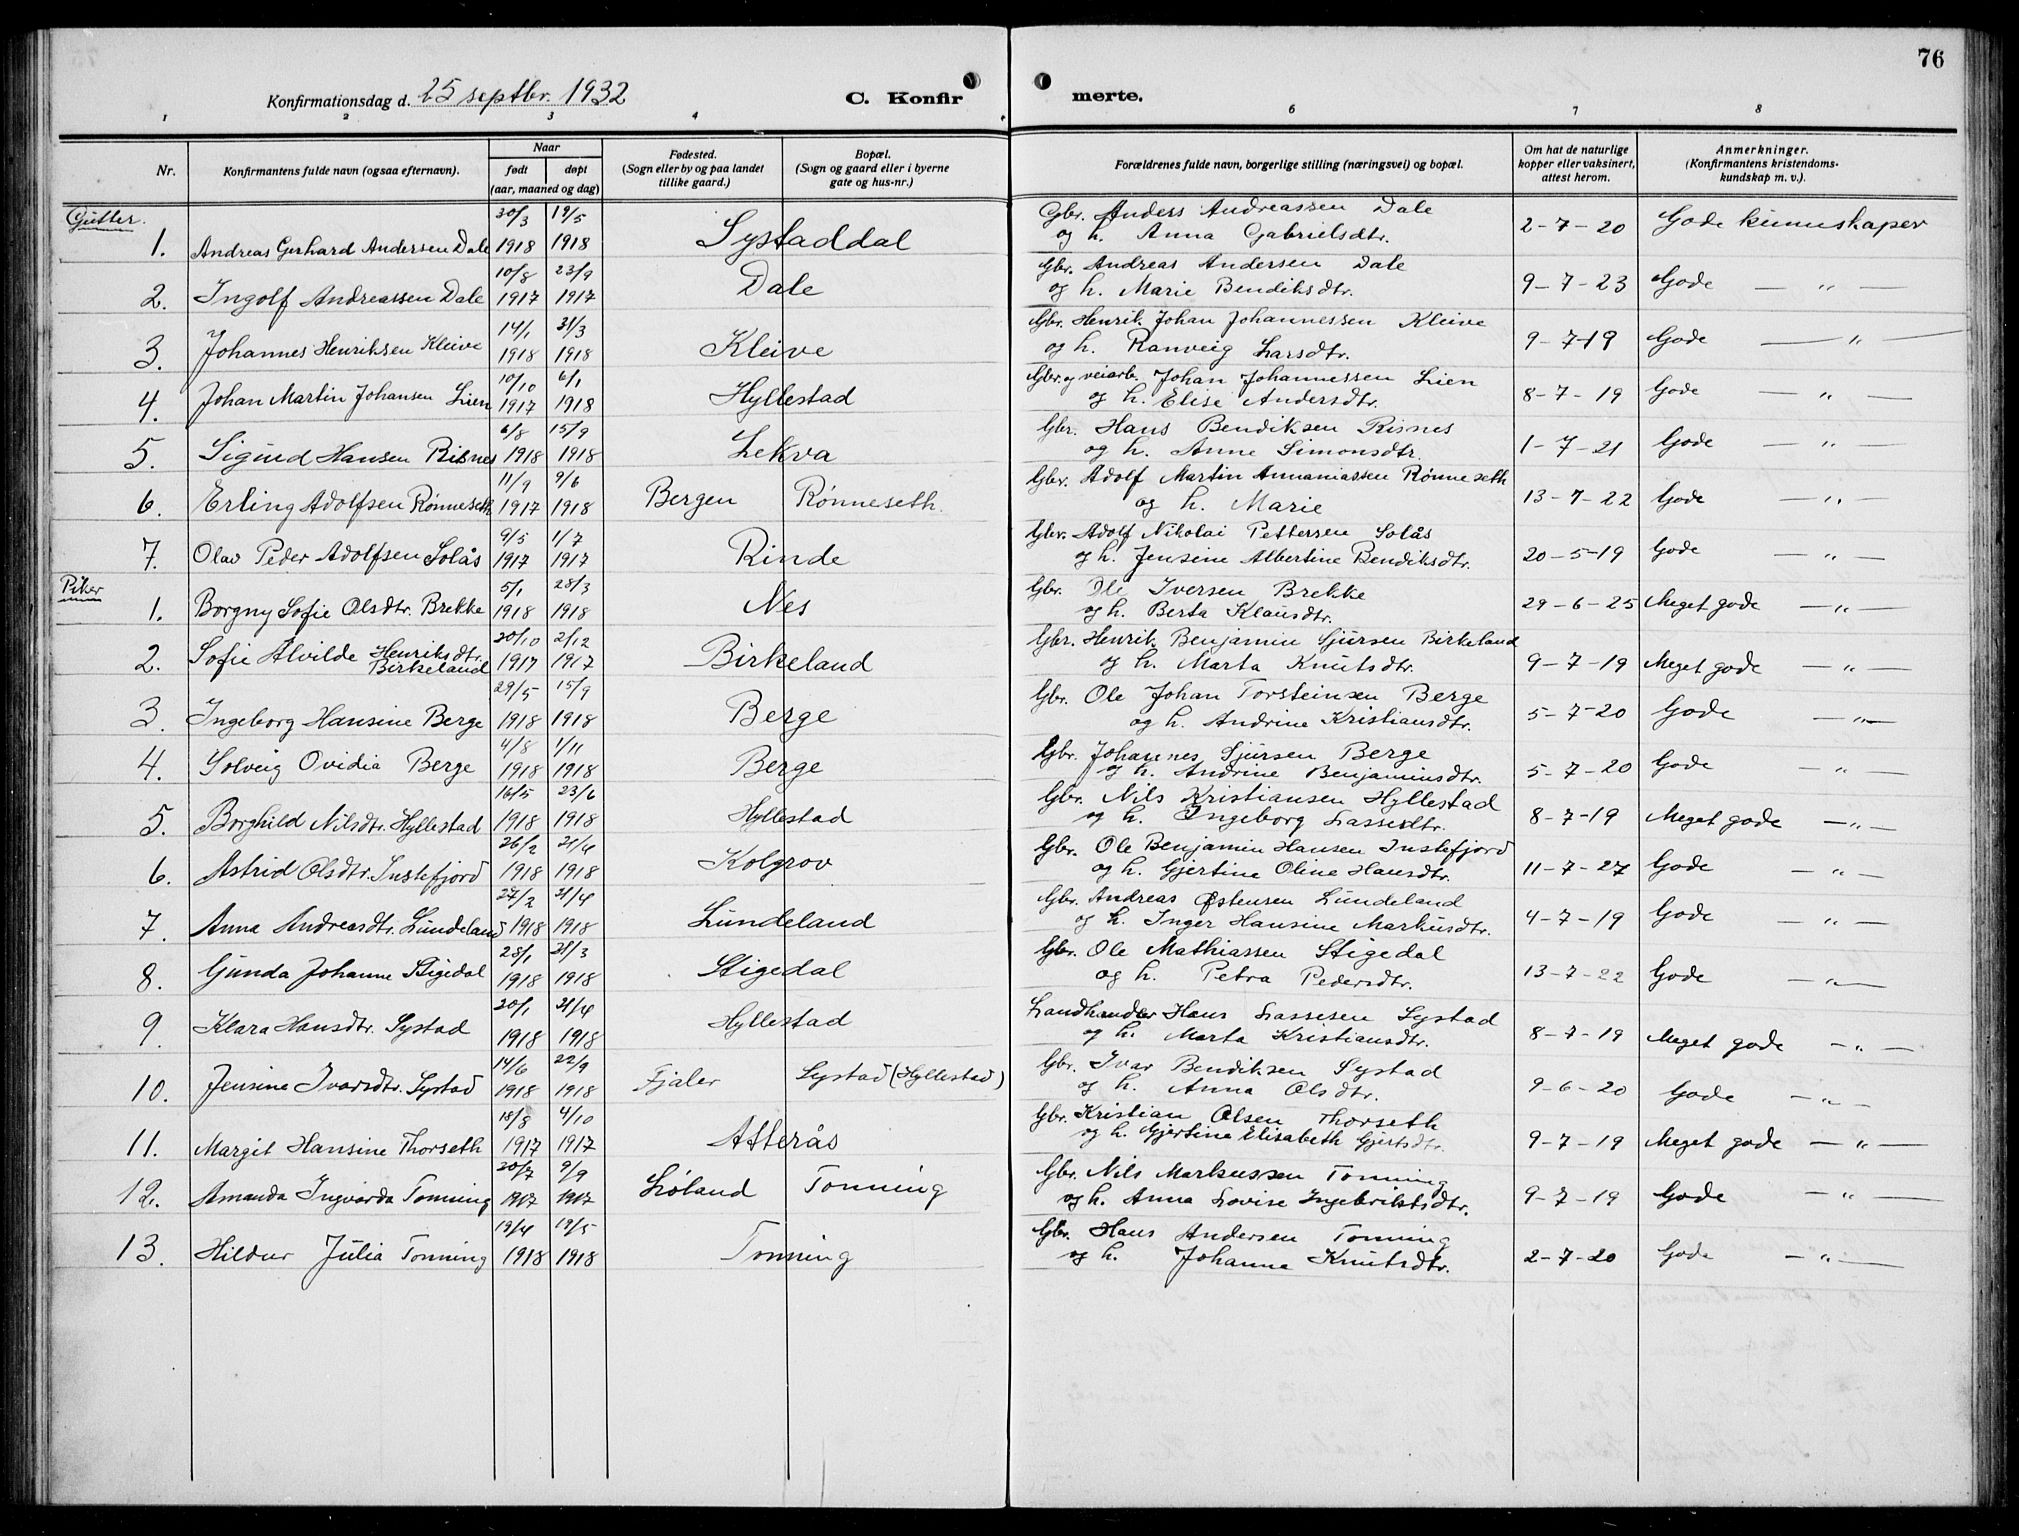 76
Konfirmationsdag d. 25 septbr. 1932 C. Konfir merte.
1 2 3 4 6 7 8
Nr. Konfirmantens fulde navn (ogsaa efternavn). Naar født døpt (aar, maaned og dag) Fødested. (Sogn eller by og paa landet tillike gaard.) Bopæl. (Sogn og gaard eller i byerne gate og hus-nr.) Forældrenes fulde navn, borgerlige stilling (næringsvei) og bopæl. Om hat de naturlige kopper eller vaksinert, attest herom. Anmerkninger. (Konfirmantens kristendoms-kundskap m. v.).
Gutter.
30/3 19/5 Gbr. Anders Andreassen Dale
1. Andreas Gerhard Andersen Dale 1918 1918 Systaddal og h. Anna Gabrielsdtr. 2-7-20 Gode kunnskaper
10/8 23/9 Gbr. Andreas Andersen Dale
2. Ingolf Andreassen Dale 1917 1917 Dale og h. Marie Bendiksdtr. 9-7-23 Gode — " —
14/1 31/3 Gbr. Henrik Johan Johannessen Kleive
3. Johannes Henriksen Kleive 1918 1918 Kleive og h. Ranveig Larsdtr. 9-7-19 Gode — " —
10/10 6/1 Gbr. og veiarb. Johan Johannessen Lien
4. Johan Martin Johansen Lien 1917 1918 Hyllestad og h. Elise Andersdtr. 8-7-19 Gode — " —
6/8 15/9 Gbr. Hans Bendiksen Risnes
5. Sigurd Hansen Risnes 1918 1918 Lekva og h. Anne Simonsdtr. 1-7-21 Gode — " —
11/9 9/6 Gbr. Adolf Martin Annaniassen Rønneseth
6. Erling Adolfsen Rønneseth 1917 1918 Bergen Rønneseth. og h. Marie 13-7-22 Gode — " —
9/5 1/7 Gbr. Adolf Nikolai Pettersen Solås
7. Olav Peder Adolfsen Solås 1917 1917 Rinde og h. Jensine Albertine Bendiksdtr. 20-5-19 Gode — " —
Piker
5/1 28/3 Gbr. Ole Iversen Brekke
1. Borgny Sofie Olsdtr. Brekke 1918 1918 Nes og h. Berta Klausdtr. 29-6-25 Meget gode — " —
20/10 2/12 Gbr. Henrik Benjamin Sjursen Birkeland
2. Sofie Alvilde Henriksdtr. Birkeland 1917 1917 Birkeland og h. Marta Knutsdtr. 9-7-19 Meget gode — " —
29/5 15/9 Gbr. Ole Johan Torsteinsen Berge
3. Ingeborg Hansine Berge 1918 1918 Berge og h. Andrine Kristiansdtr. 5-7-20 Gode — " —
4/8 1/11 Gbr. Johannes Sjursen Berge
4. Solveig Ovidia Berge 1918 1918 Berge og h. Andrine Benjaminsdtr. 5-7-20 Gode — " —
16/5 23/6 Gbr. Nils Kristiansen Hyllestad
5. Borghild Nilsdtr. Hyllestad 1918 1918 Hyllestad og h. Ingeborg Lassesdtr. 8-7-19 Meget gode — " —
26/2 21/4 Gbr. Ole Benjamin Hansen Instefjord
6. Astrid Olsdtr. Instefjord 1918 1918 Kolgrov og h. Gjertine Oline Hansdtr. 11-7-27 Gode — " —
27/2 21/4 Gbr. Andreas Østensen Lundeland
7. Anna Andreasdtr. Lundeland 1918 1918 Lundeland og h. Inger Hansine Markusdtr. 4-7-19 Gode — " —
28/1 31/3 Gbr. Ole Mathiassen Stigedal
8. Gunda Johanne Stigedal 1918 1918 Stigedal og h. Petra Pedersdtr. 13-7-22 Gode — " —
20/1 21/4 Landhandler Hans Lassesen Systad
9 Klara Hansdtr. Systad 1918 1918 Hyllestad og h. Marta Kristiansdtr. 8-7-19 Meget gode — " —
14/6 22/9 Gbr. Ivar Bendiksen Systad
10. Jensine Ivarsdtr. Systad 1918 1918 Fjaler Systad (Hyllestad) og h. Anna Olsdtr. 9-6-20 Gode — " —
18/8 4/10 Gbr. Kristian Olsen Thorseth
11. Margit Hansine Thorseth 1917 1917 Atterås og h. Gjertine Elisabeth Gjertsdtr. 9-7-19 Meget gode — " —
20/7 9/9 Gbr. Nils Markussen Tonning
12. Amanda Ingvarda Tonning 1917 1917 Løland Tonning og h. Anna Lovise Ingebriktsdtr. 9-7-19 Gode — " —
19/4 19/5 Gbr. Hans Andersen Tonning
13. Hildur Julia Tonning 1918 1918 Tonning og h. Johanne Knutsdtr. 2-7-20 Gode — " —